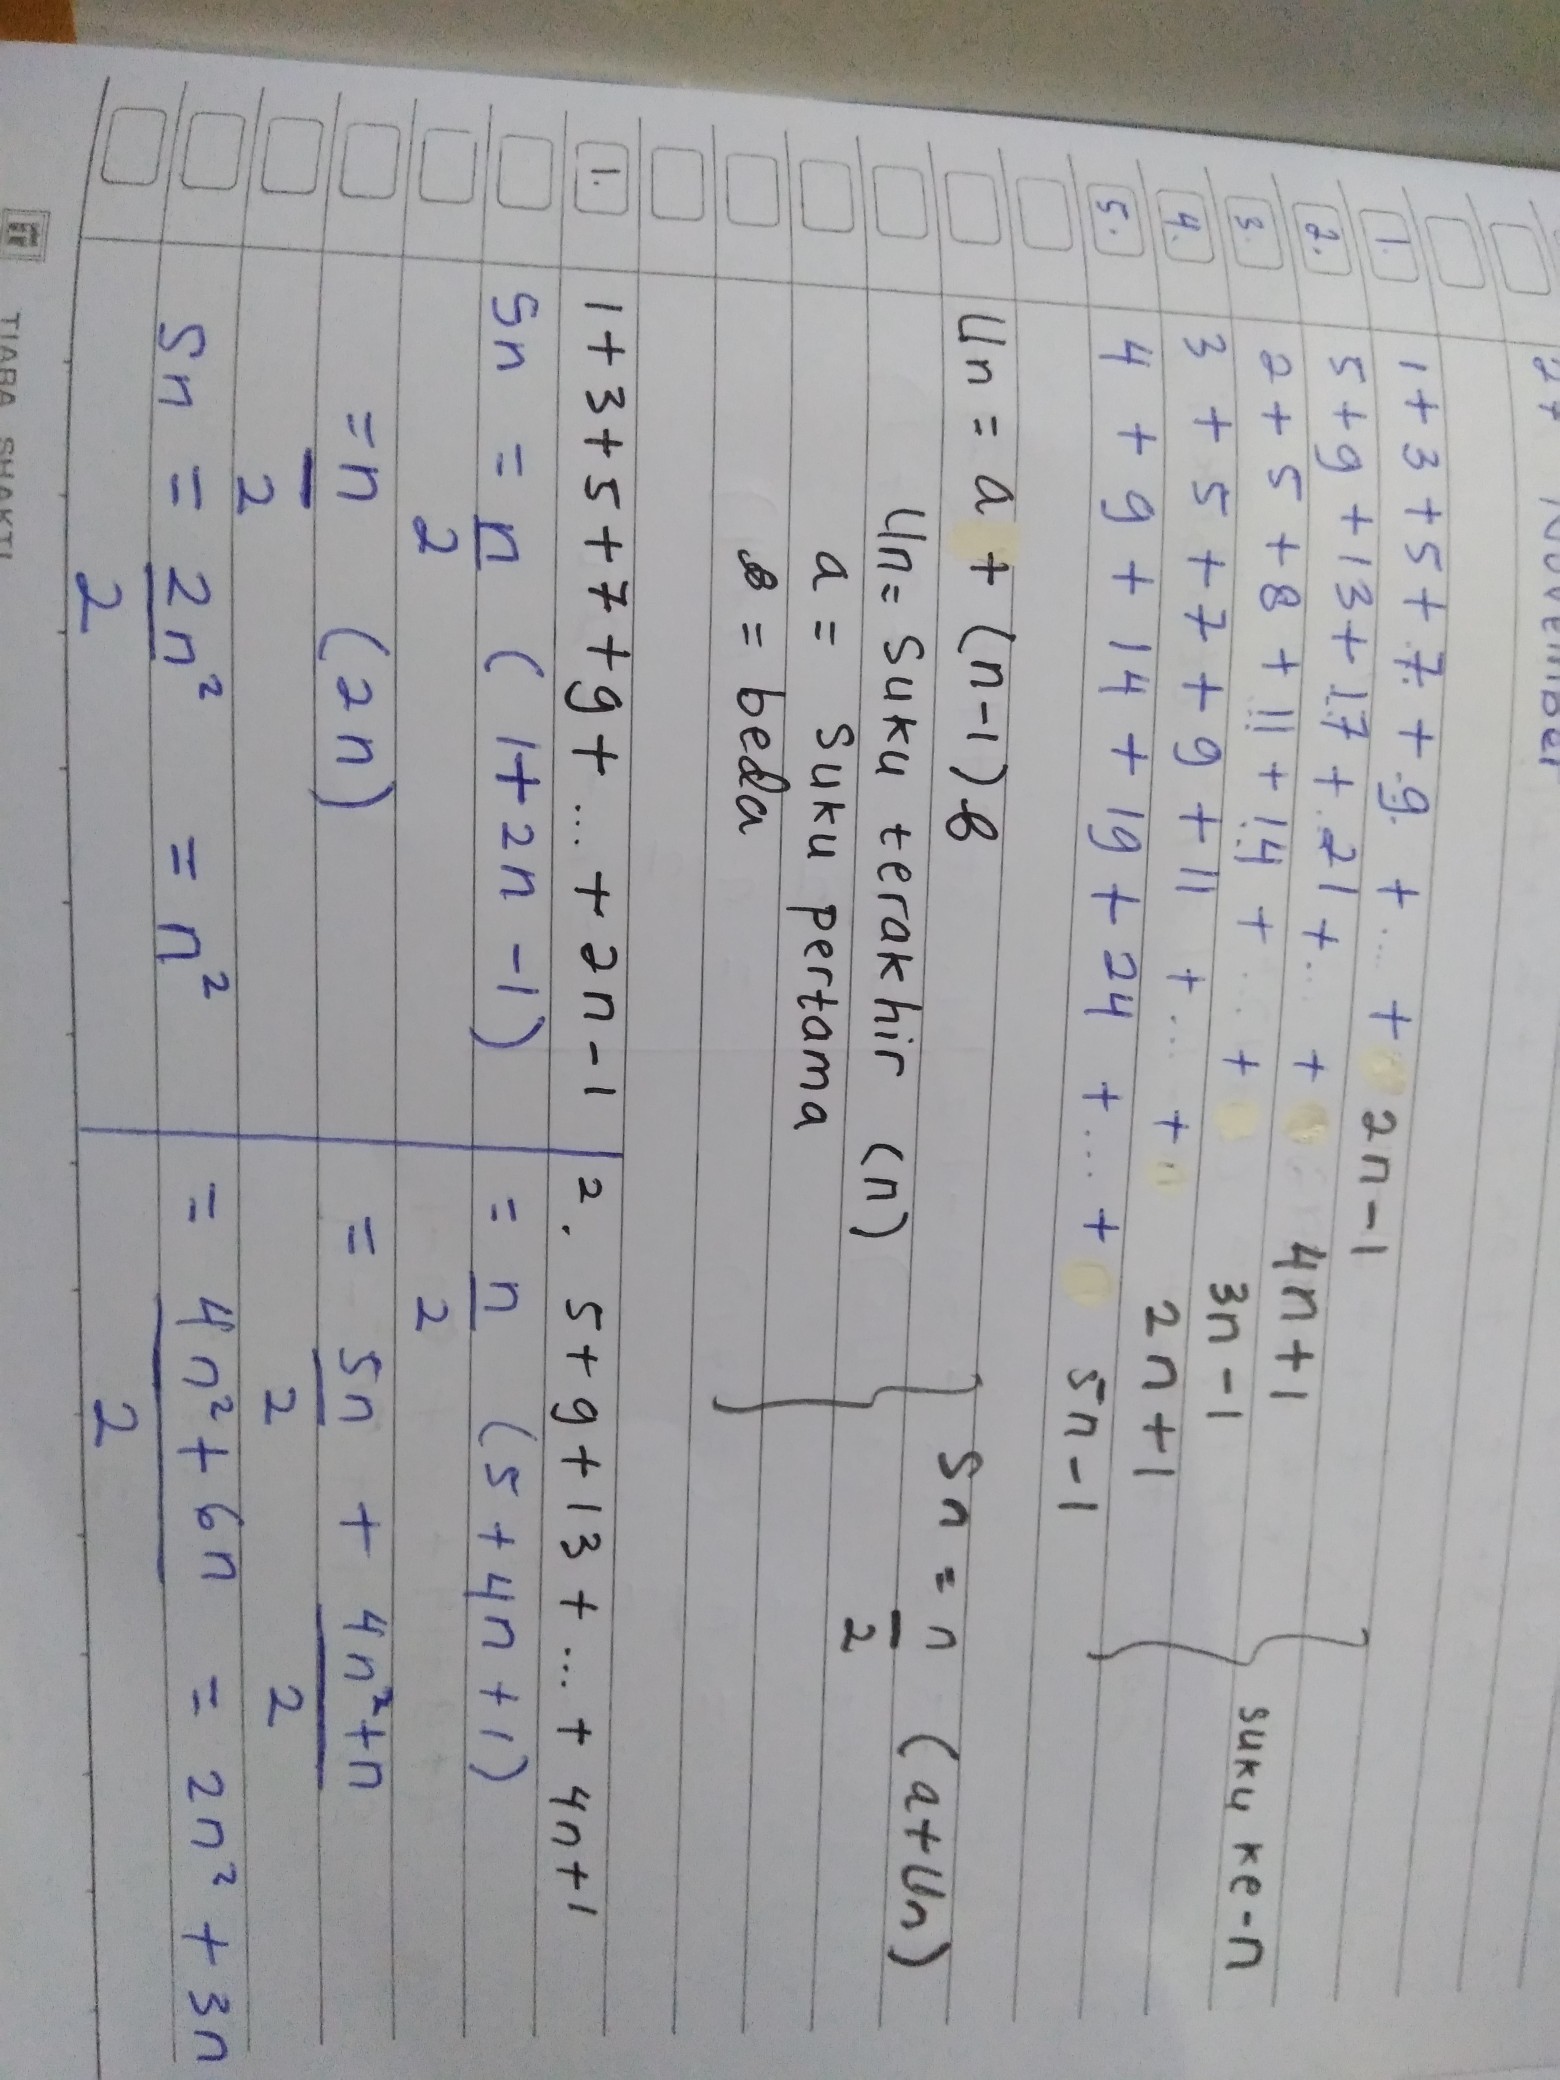 27 November
1. 1 + 3 + 5 + 7 + 9 + ... + 2n - 1
2. 5 + 9 + 13 + 17 + 21 + ... + 4n + 1
3. 2 + 5 + 8 + 11 + 14 + ... + 3n - 1
4. 3 + 5 + 7 + 9 + 11 + ... + 2n + 1
5. 4 + 9 + 14 + 19 + 24 + ... + 5n - 1
suku ke-n
Un = a + (n-1) b
Un = Suku terakhir (n)
a = Suku pertama
b = beda
Sn = n/2 (a + Un)
1. 1 + 3 + 5 + 7 + 9 + ... + 2n - 1
Sn = n/2 (1 + 2n - 1)
= n/2 (2n)
Sn = 2n²/2 = n²
2. 5 + 9 + 13 + ... + 4n + 1
= n/2 (5 + 4n + 1)
= 5n/2 + 4n²+n/2
= 4n² + 6n/2 = 2n² + 3n
TIARA SHAKTI